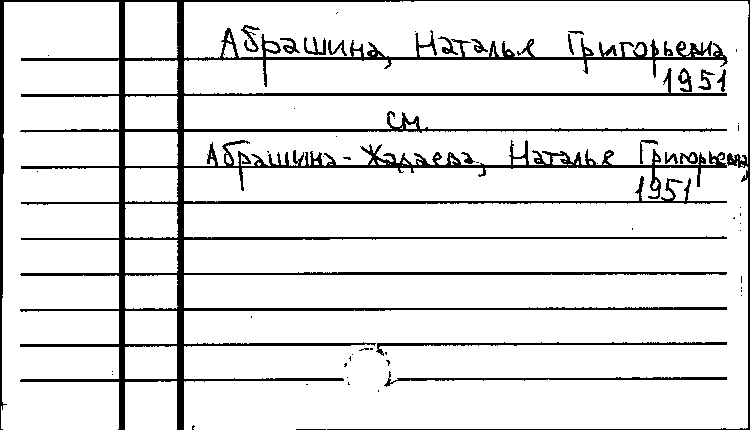 Абрашина, Наталья Григорьевна,
1951
см.
Абрашина-Жадаева, Наталья Григорьевна,
1951